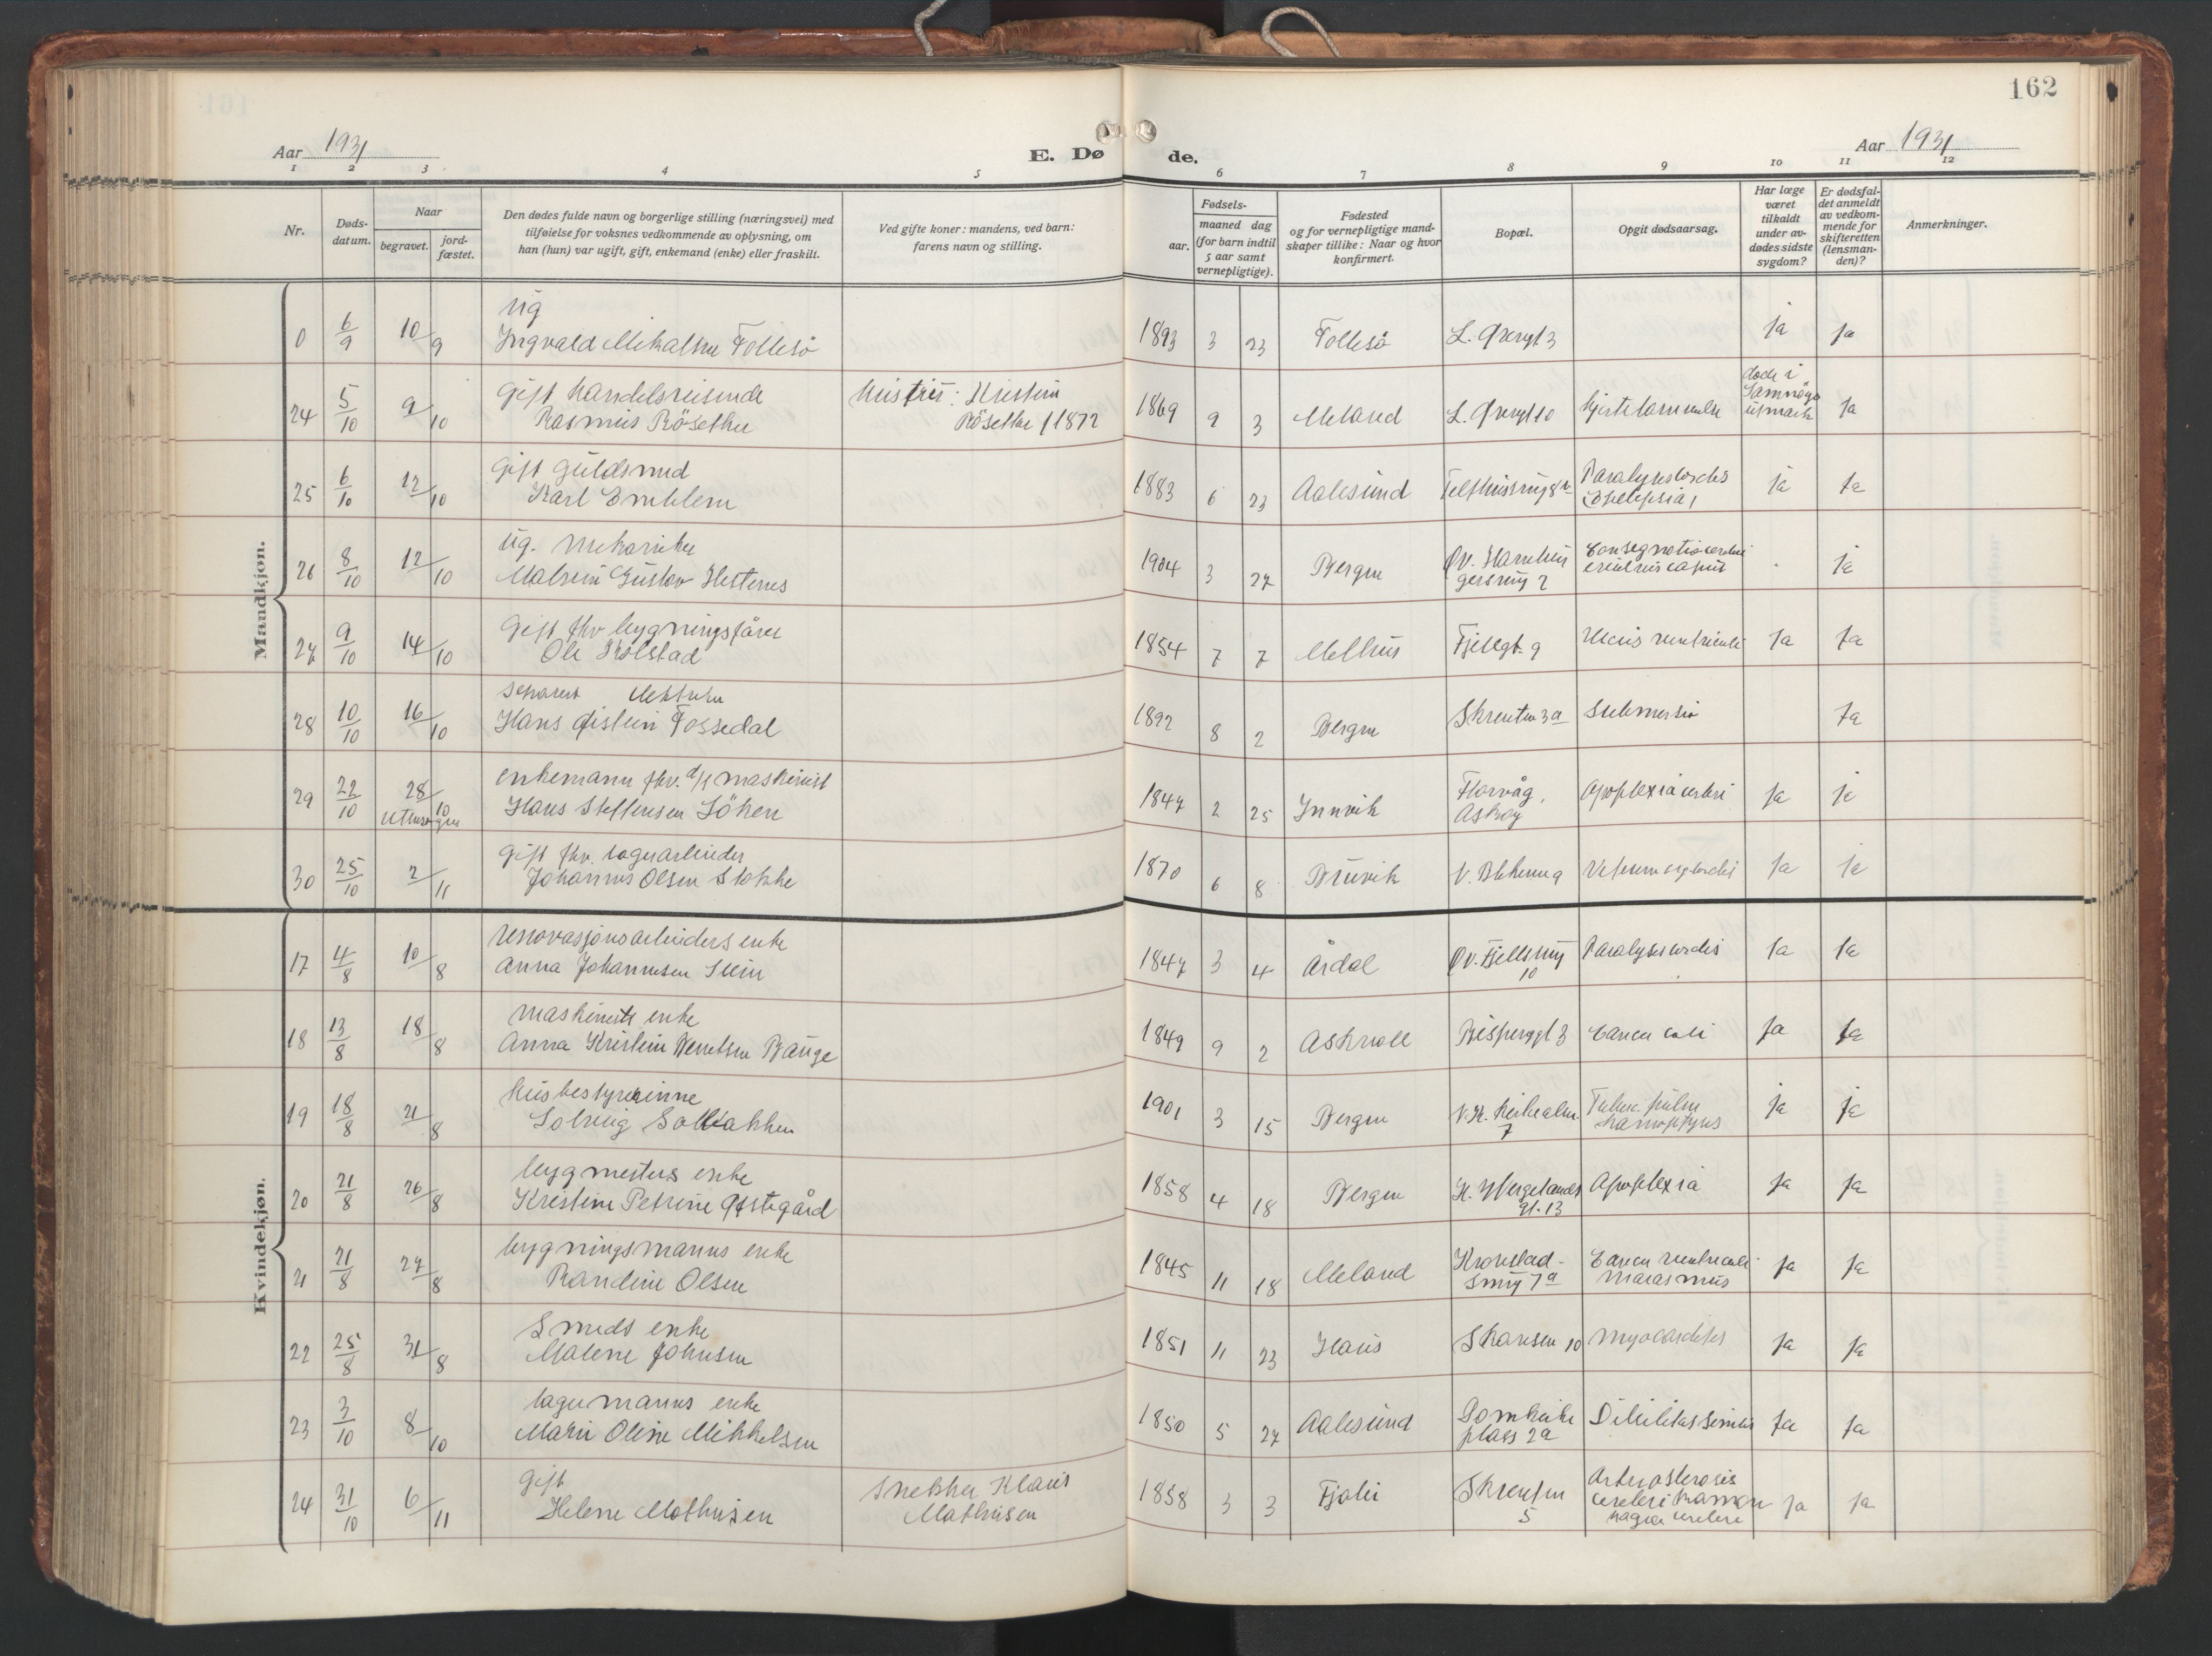 162
Aar 1931
E. Dø de.
Aar 1931
1 2 3 4 5 6 7 8 9 10 11 12
Nr.
Døds-
datum.
Naar
begravet.
jord-
fæstet.
Den dødes fulde navn og borgerlige stilling (næringsvei) med
tilføielse for voksnes vedkommende av oplysning, om
han (hun) var ugift, gift, enkemand (enke) eller fraskilt.
Ved gifte koner: mandens, ved barn:
farens navn og stilling.
Fødsels-
aar.
maaned dag
(for barn indtil
5 aar samt
vernepligtige).
Fødested
og for vernepligtige mand-
skaper tillike: Naar og hvor
konfirmert.
Bopæl.
Opgit dødsaarsag.
Har læge
været
tilkaldt
under av-
dødes sidste
sygdom?
Er dødsfal-
det anmeldt
av vedkom-
mende for
skifteretten
(lensman-
den)?
Anmerkninger.
Mandkjøn.
ug
0 6/9 10/9 Ingvald Mikalsen Follesö 1893 3 23 Follesö L. Øvregt 3 ja ja
gift handelsreisende
24 5/10 9/10 Rasmus Rösether
Hustru: Kristine
Rösether f 1872
1869 9 3 Meland L. Øvregt 10 hjertelammelse
døde i
Samnøys
utmark
ja
gift guldsmed
25 6/10 12/10 Karl Emblem 1883 6 23 Aalesund Telthussmug 8 b
Paralysis cordis
(Epelepsia)
ja ja
ug. mekaniker
26 8/10 12/10 Gustav Hestenes 1904 3 27 Bergen
ja
gift fhv bygningsfører
27 9/10 14/10 Ole Kolstad 1854 7 7 Melhus Fjellgt. 9 Ulcus ventriculi ja ja
separert
28 10/10 16/10 Hans Øistein Fossedal 1892 8 2 Bergen Skreuten 3a Submersio ja
enkemann fhv. d/s maskinist
29 22/10 28/10 Hans Steffensen Löken
1847 2 25 Innvik
Florvåg,
Askøy
Apoplexia cerebri ja ja
gift fhv. lagerarbeider
30 25/10 2/11 Johannes Olsen Stokke 1870 6 8 Bruvik V. Blekevei 9 ja ja
Kvindekjøn.
renovasjonsarbeiders enke
17 4/8 10/8 Anna Johannesen Stein 1847 3 4 Årdal
Øv. Fjellsmug
10
Paralysis cordis ja ja
maskinists enke
18 13/8 18/8 Anna Kristine Berntsen Bauge 1849 9 2 Askvoll Bispenggt 3 Cancer coli ja ja
husbestyrerinne
19 18/8 21/8 Solveig Solbakken 1901 3 15 Bergen
7
Tuberc. pulm
hæmoptysis
ja ja
bygmesters enke
20 21/8 26/8 Kristine Petrine Østegård 1858 4 18 Bergen
H. Wergelands
gt. 13
Apoplexia ja ja
bygningsmanns enke
21 21/8 27/8 Randine Olsen 1845 11 18 Meland
Kronstad-
smug 7a
Cancer ventriculi
Marasmus
ja ja
Smeds enke
22 25/8 31/8 Malene Johnsen 1851 11 23 Haus Skansen 10 Myocarditis ja ja
lagermanns enke
23 3/10 8/10 Marie Oline Mikkelsen 1850 5 27 Aalesund
Domkirke
plass 2a
Debilitas senilis ja ja
gift
24 31/10 6/11 Helene Mathisen
Snekker Klaus
Mathisen
1858 3 3 Fjaler
Skreuten
5
cerebri
cerebri
ja ja